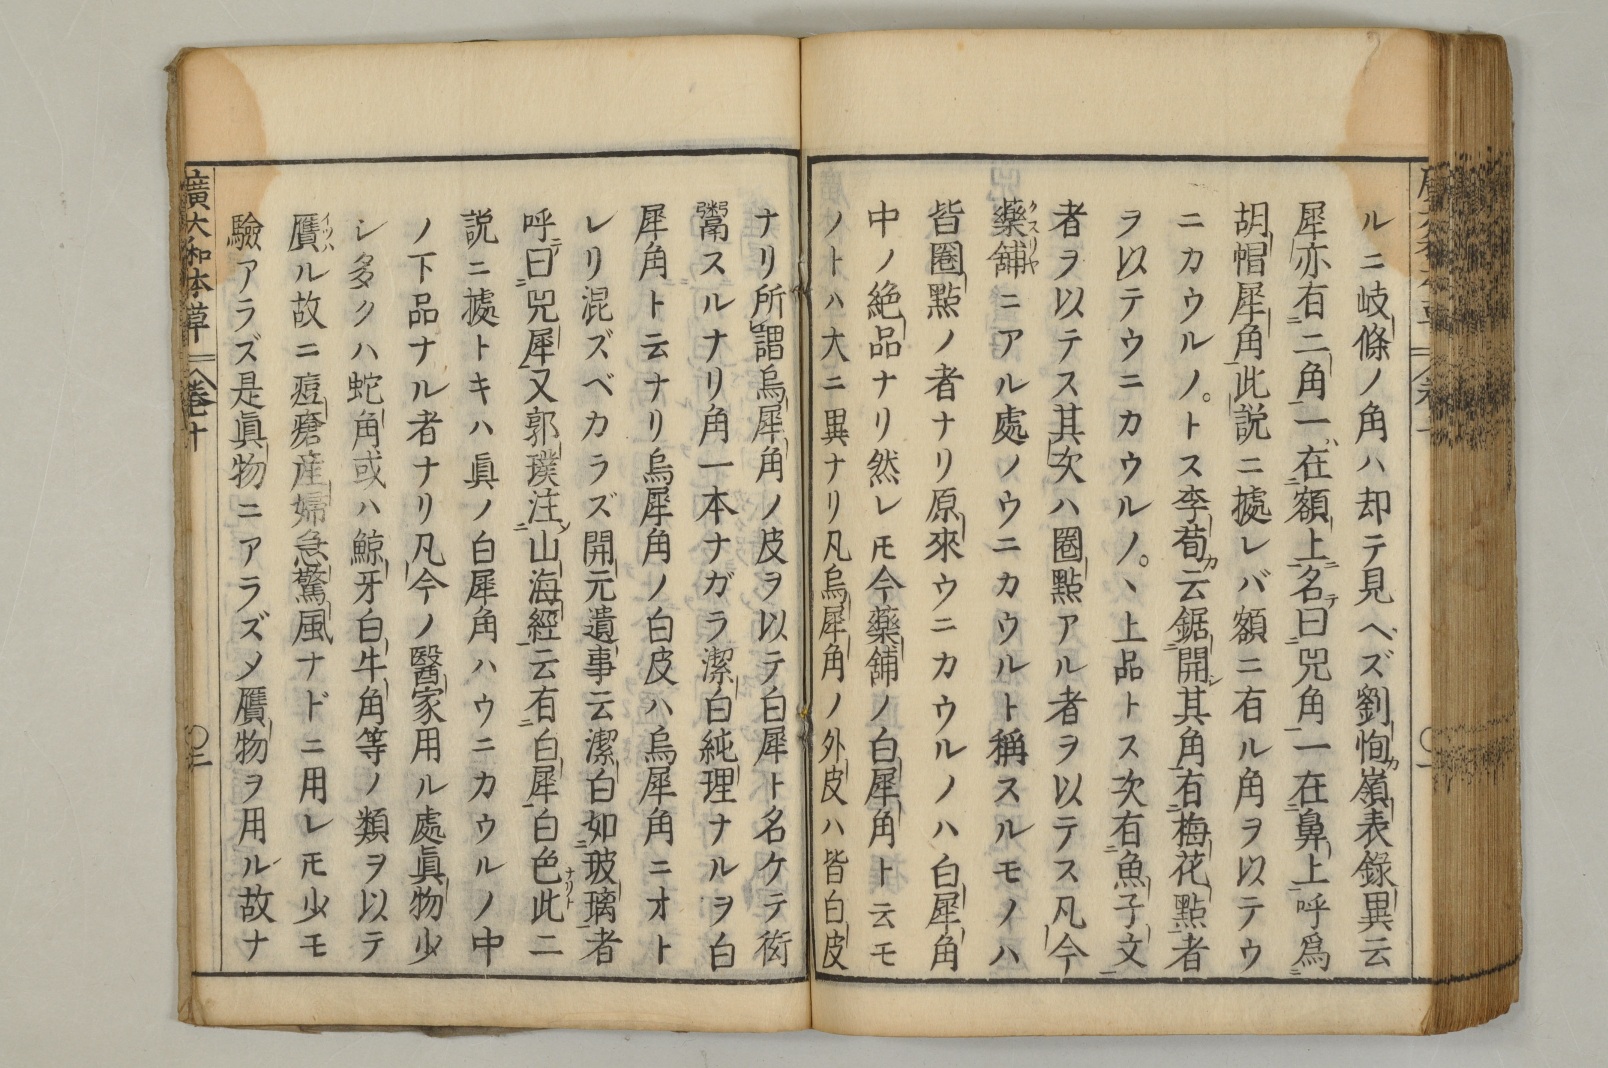 ルニ岐條ノ角ハ却テ見ヘズ劉恂嶺表錄異云
犀亦有二角一在額上名曰兕角一在鼻上呼爲
胡帽犀角此説ニ據レバ額ニ有ル角ヲ以テウ
ニカウルノトス李荀云鋸開其角有梅花點者
ヲ以テウニカウルノ上品トス次有魚子文
者ヲ以テス其次ハ圏點アル者ヲ以テス凡今
藥舖ニアル處ノウニカウルト稱スルモノハ
皆圏點ノ者ナリ原來ウニカウルノハ白犀角
中ノ絶品ナリ然レ𪜈今藥舖ノ白犀角ト云モ
ノトハ大ニ異ナリ凡烏犀角ノ外皮ハ皆白皮
ナリ所謂烏犀角ノ皮ヲ以テ白犀ト名ケテ衒
鬻スルナリ角一本ナガラ潔白純理ナルヲ白
犀角ト云ナリ烏犀角ノ白皮ハ烏犀角ニオト
レリ混ズベカラズ開元遺事云潔白如玻璃者
呼曰兕犀又郭璞注山海經云有白犀白色此二
説ニ據トキハ眞ノ白犀角ハウニカウルノ中
ノ下品ナル者ナリ凡今ノ醫家用ル處眞物少
シ多クハ蛇角或ハ鯨牙白牛角等ノ類ヲ以テ
贋ル故ニ痘瘡産婦急驚風ナドニ用レ𪜈少モ
驗アラズ是眞物ニアラズメ贋物ヲ用ル故ナ
廣大和本草 卷十 〇二